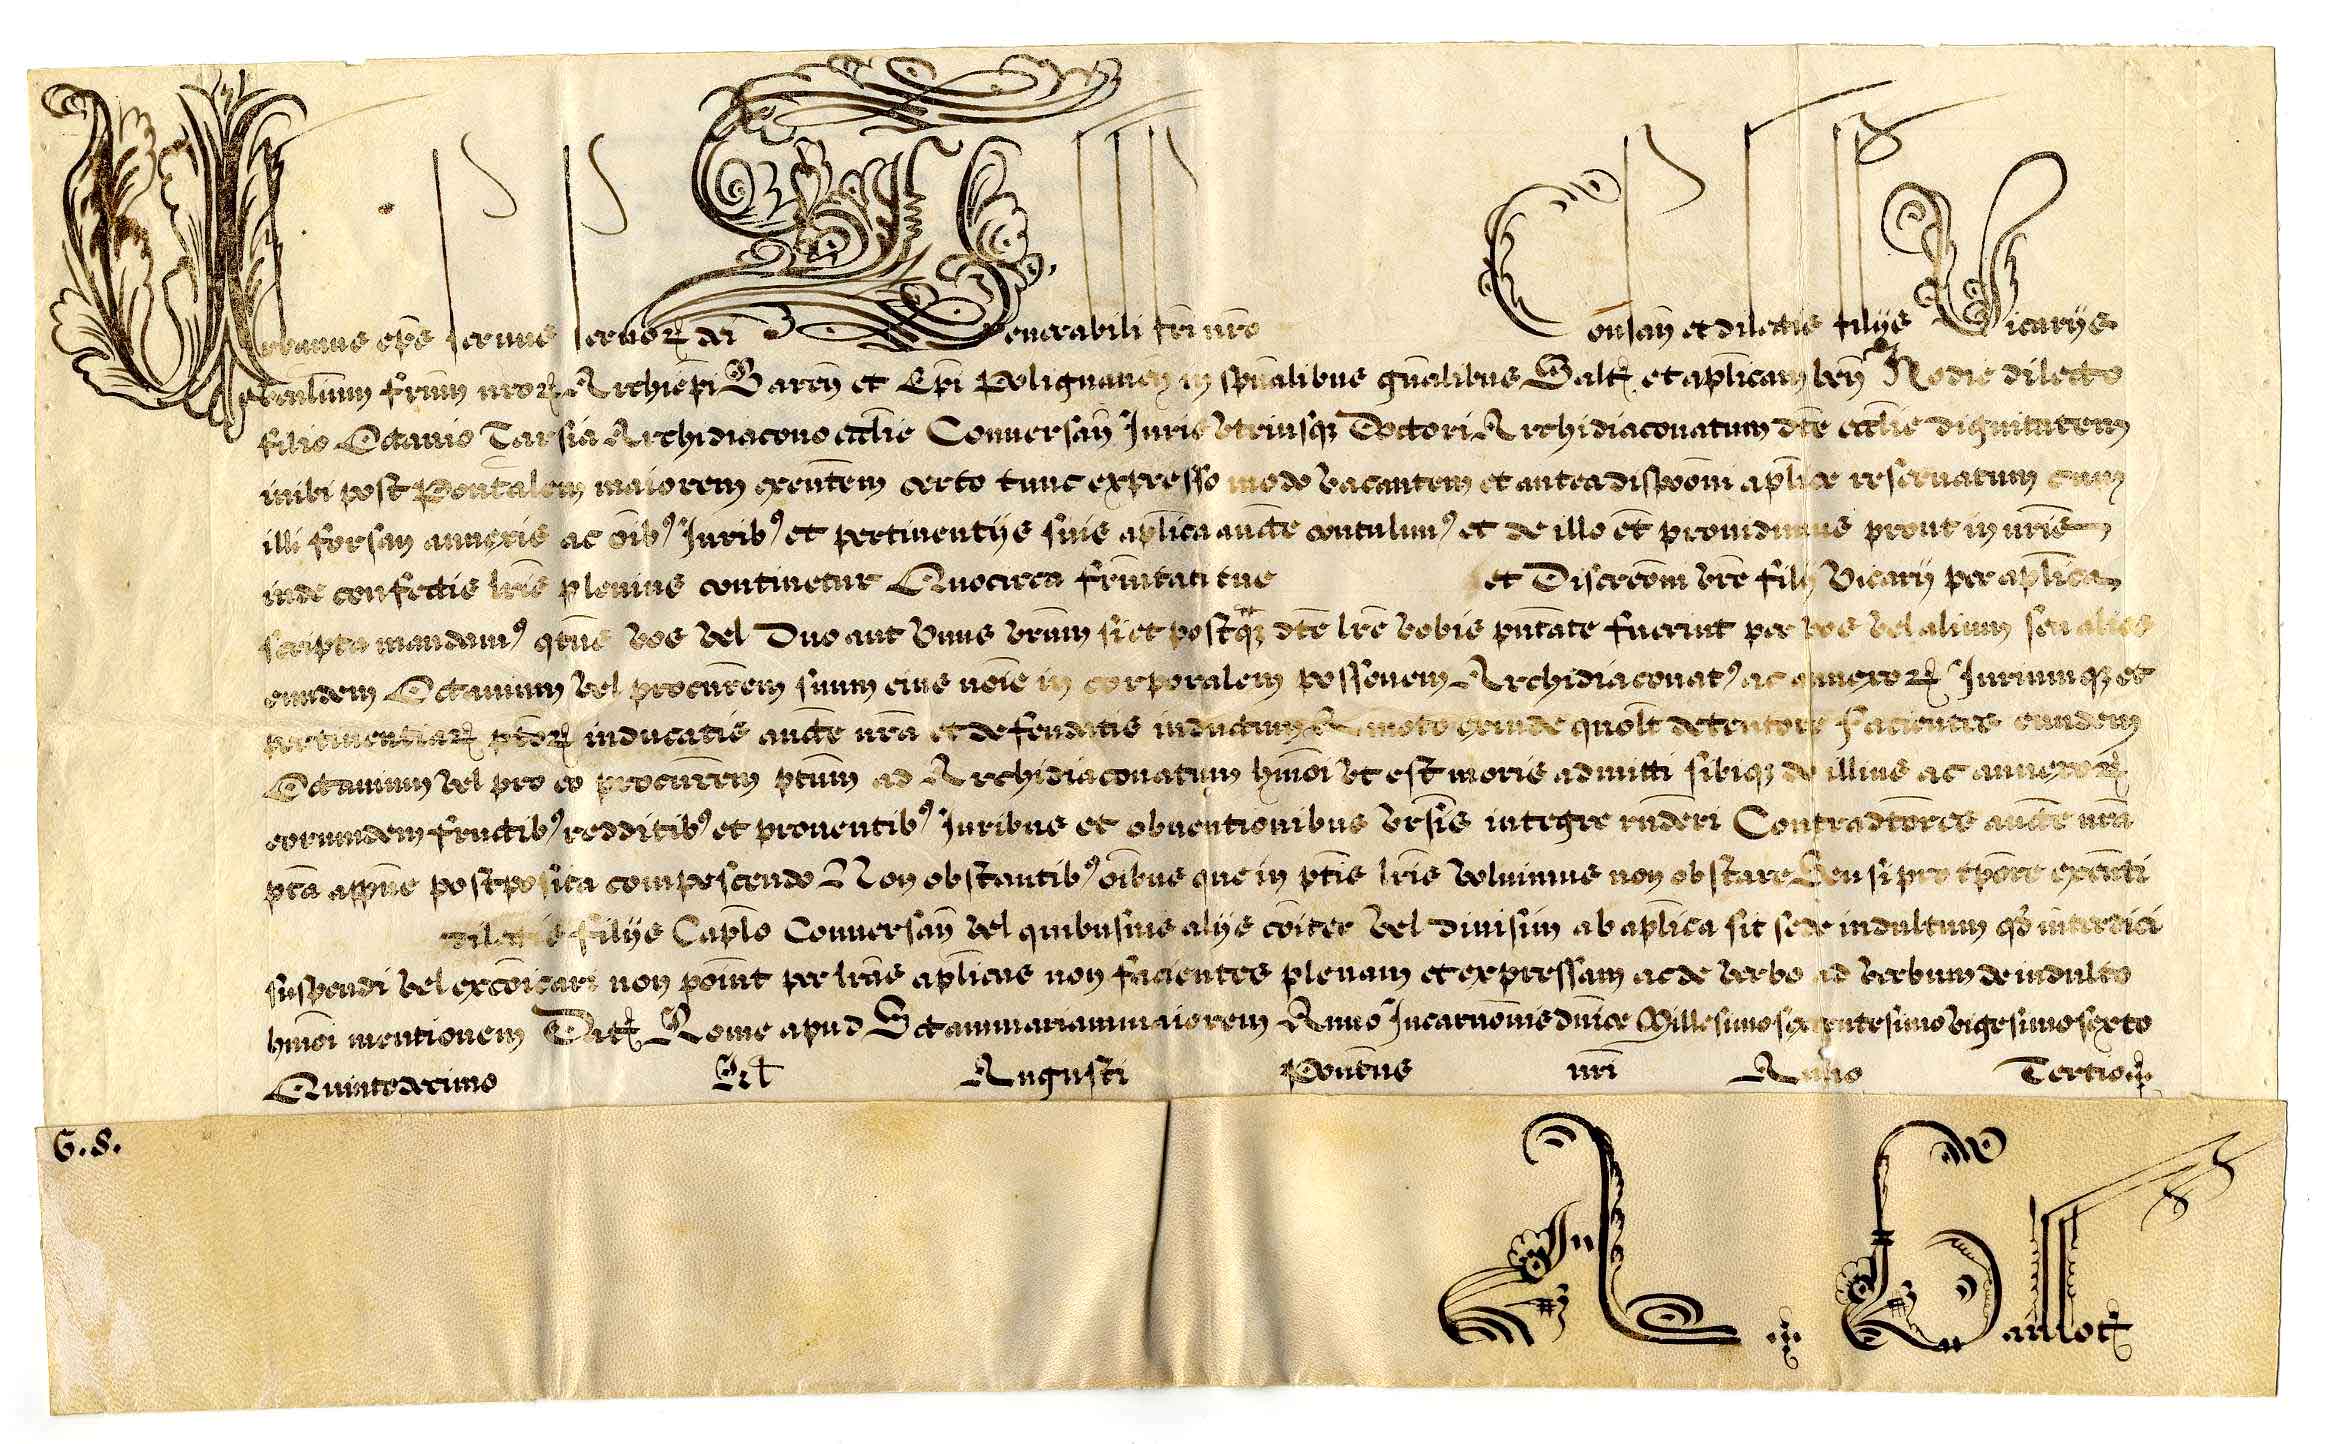 Urbanus ep̃s seruus seruoꝝ dei Venerabili fr̃i nr̃o Conuersañ et dilectis filijs Vicarijs
Venerabilium fr̃um nr̃oꝝ Archiep̃i Bareñ et Ep̃i Polignaneñ in sp̃ualibus gñalibus Salt̃ et apl̃icam beñ Hodie dilecto
filio Octauio Tarsia Archidiacono eccl̃ie Conuersañ Juris vtriusqꝫ Doctori Archidiaconatum dc̃e eccl̃ie dignitatem
inibi post Pont̃alem maiorem exeñtem certo tunc expresso modo vacantem et antea dispõni apl̃ice reseruatum cum
illi forsan annexis ac õibꝰ Juribꝰ et pertinentijs suis apl̃ica aucte contulimꝰ et de illo et̃ prouidimus prout in nr̃is
inde confectis lr̃is plenius continetur Quocirca fr̃nitati tue et Discretõni vr̃e filij Vicarij per apl̃ica
scripta mandamꝰ qtñs vos vel Duo aut Vnus vr̃um si et postqꝫ dc̃e lr̃e vobis pñtate fuerint per vos vel alium seu alios
eundem Octauium vel procur̃em suum eius nõie in corporalem possõnem Archidiaconatꝰ ac annexoꝝ Juriumqꝫ et
pertinentiaꝝ pt̃oꝝ inducatis aucte nr̃a et defendatis inductum amoto exinde quol̃t detentore facientes eundem
Octauium vel pro eo procur̃em pt̃um ad Archidiaconatum hm̃oi vt est moris admitti sibiqꝫ de illius ac annexoꝝ
eorumdem fructibꝰ redditibꝰ et prouentibꝰ Juribus et obuentionibus vr̃sis integre rñderi Contradc̃ores aucte nr̃a
pt̃a appñe postposita compescendo Non obstantibꝰ õibus que in pt̃is lr̃is voluimus non obstare Seu si pro tp̃ore exñti
dilectis filijs Capl̃o Conuersañ vel quibusuis alijs cõiter vel diuisim ab apl̃ica sit sede indultum qd̃ interdici
suspendi vel excõicari non põint per lr̃as apl̃icas non facientes plenam et expressam ac de verbo ad verbum de indulto
hm̃oi mentionem Dat̃ Rome apud Sctammariammaiorem Anno Incarnõnis dñice Millesimosexcentesimovigesimosexto
Quintodecimo Kl̃ Augusti Pontũs nr̃i Anno Tertio
G.S.